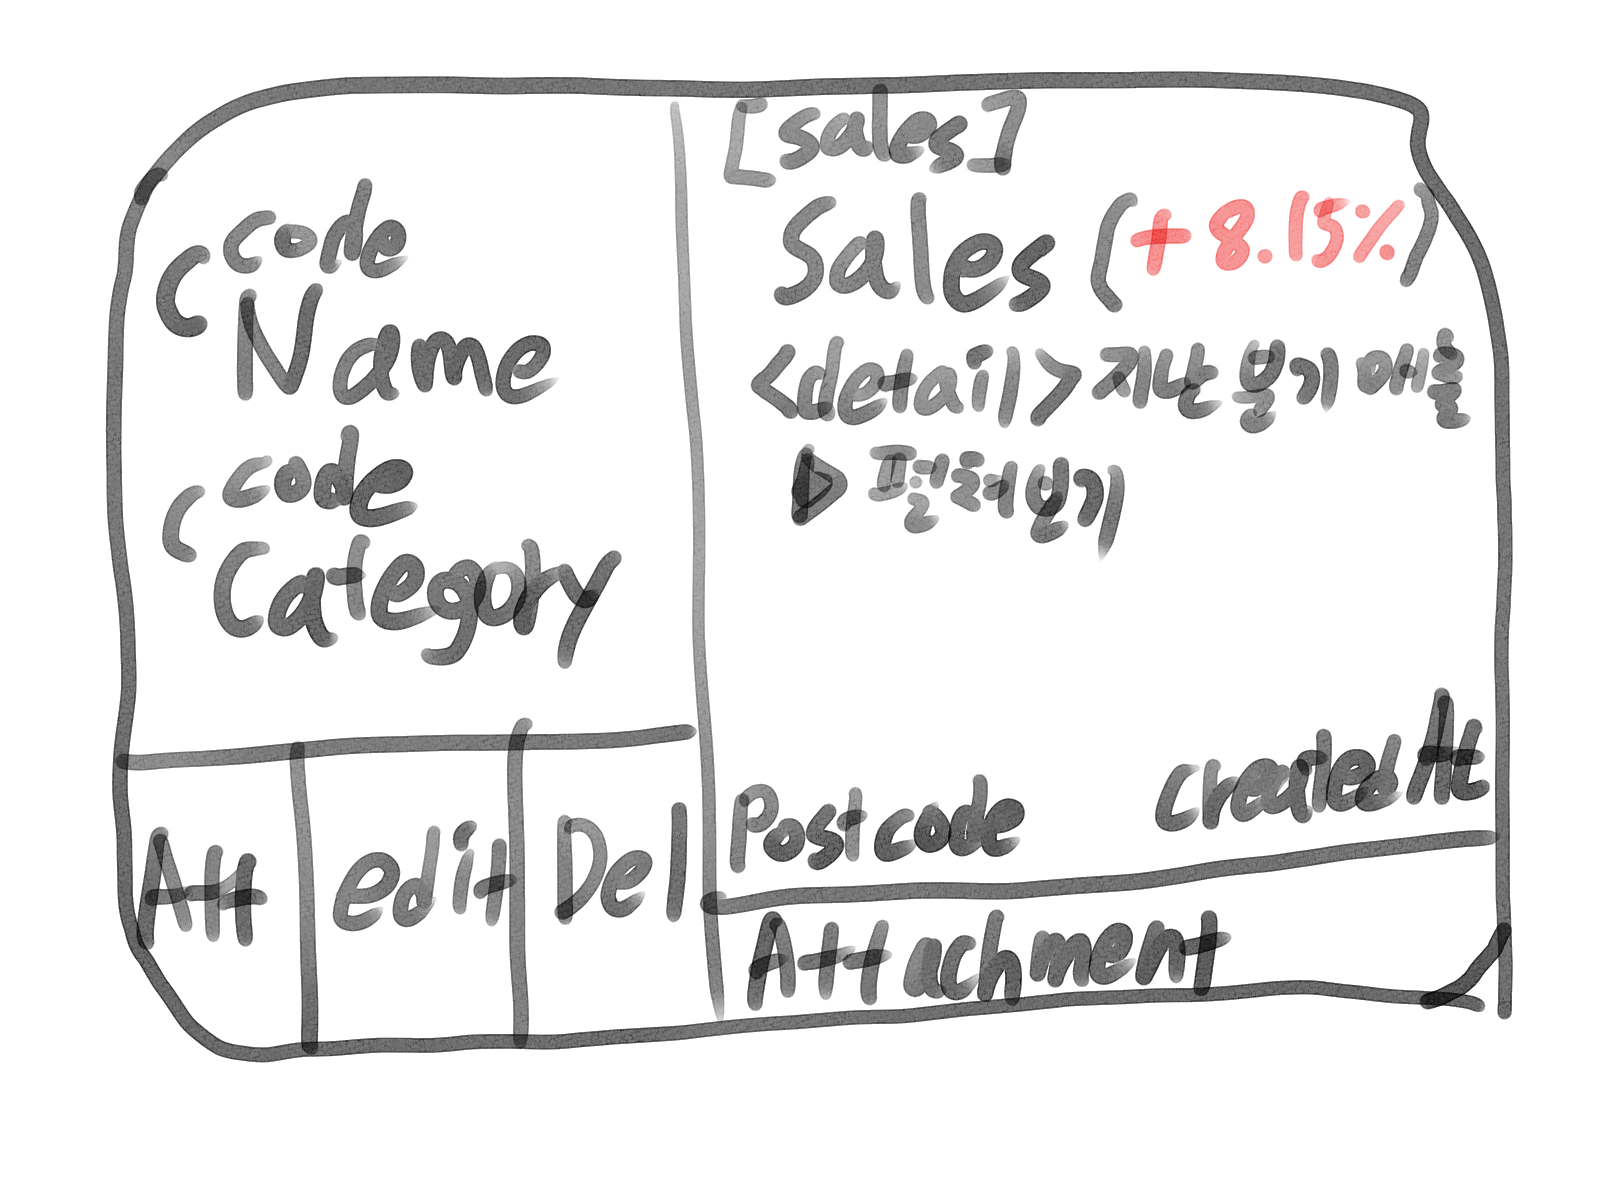 code
Name
code
Category
Att
edit
Del
[sales]
Sales (+8.15%)
<detail> 지난 분기 매출
▷ 펼쳐보기
Postcode
createdAt
Attachment